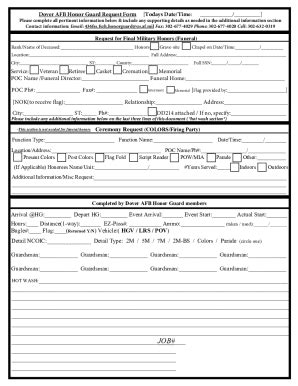 Dover AFB Honor Guard Request Form [Todays Date/Time: / / ]
Please complete all pertinent information below & include any supporting details as needed in the additional information section
Contact information: Email: 436fss.fsoh.honorguard@us.af.mil Fax: 302-677-4029 Phone: 302-677-6028 Cell: 302-632-0310
Request for Final Military Honors (Funeral)
Rank/Name of Deceased: Honors Grave site Chapel on Date/Time: / /
Location: Full Address:
City: ST: County: Full SSN: / /
Service Veteran Retiree Casket Cremation Memorial
POC Name/Funeral Director: Funeral Home:
POC Ph#: Fax#: [Flag provided by:
[NOK(to receive flag): Relationship: Address:
City: ST: Ph#: DD214 attached/ If no, specify:
Please include any additional information below on the last three lines of this document "hot wash section"
This section is not needed for funeral honors Ceremony Request (COLORS/Firing Party)
Function Type: Function Name: Date/Time: / /
Location/Address: POC Name/Ph#:
Present Colors Post Colors Flag Fold Script Reader POW/MIA Parade Other:
(If Applicable) Honorees Name Unit: #Years Served: Indoors Outdoors
Additional Information/Misc Request:
Completed by Dover AFB Honor Guard members
Arrival @HG: Depart HG: Event Arrival: Event Start: Actual Start:
Hours: Distance(1-way): EZ-Pass#: Ammo: (taken / used) /
Bugle# Flag: (Returned Y/N) Vehicle( HGV / LRS / POV)
Detail NCOIC: Detail Type: 2M / 5M / 7M / 2M-BS / Colors / Parade (circle one)
Guardsman: Guardsman: Guardsman: Guardsman:
Guardsman: Guardsman: Guardsman: Guardsman:
HOT WASH:
JOB#